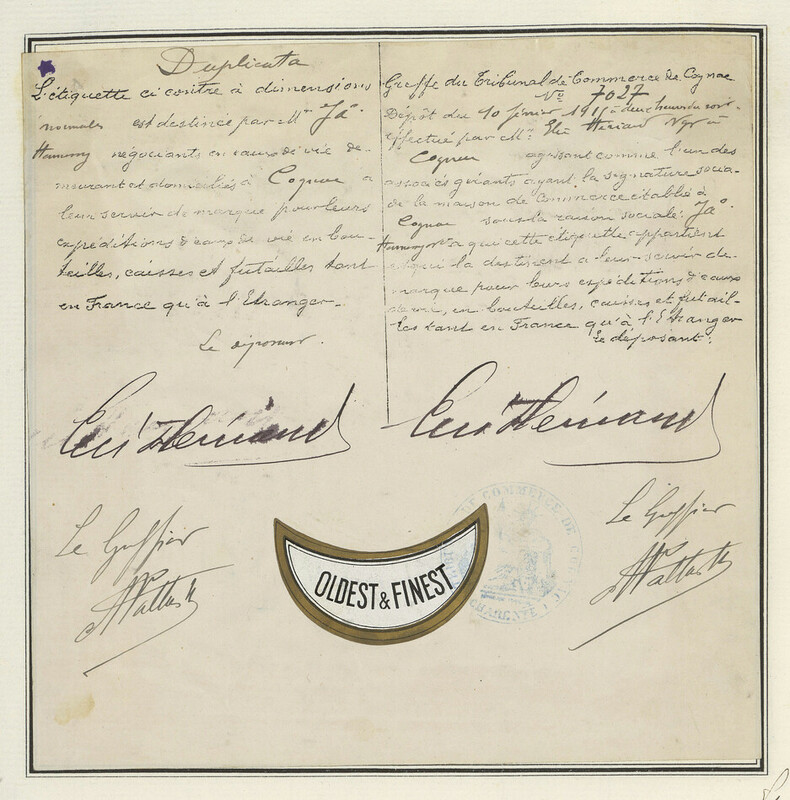 Duplicata
L'étiquette ci contre à dimensions
normales est destinée par MM. Jas
Hennessy négociants en eaux de vie de-
meurant et domiciliés à Cognac a
leur servir de marque pour leurs
expéditions d'eaux de vie en bou-
teilles, caisses et futailles tant
en France qu'à l'Etranger.
Le déposant.
Greffe du Tribunal de Commerce de Cognac
No 7027
Dépôt du 10 février à deux heures du soir
effectué par Mr. Négt à
Cognac agissant comme l'un des
associés gérants ayant la signature socia-
le de la maison de Commerce établie à
Cognac sous la raison sociale: Jas
Hennessy à qui cette étiquette appartient
et qui la destinent a leur servir de
marque pour leurs expéditions d'eaux
de vie, en bouteilles, caisses et futail-
les tant en France qu'à l'Etranger
le déposant.
Le Greffier
Le Greffier
OLDEST & FINEST
DE COMMERCE DE
CHARENTE